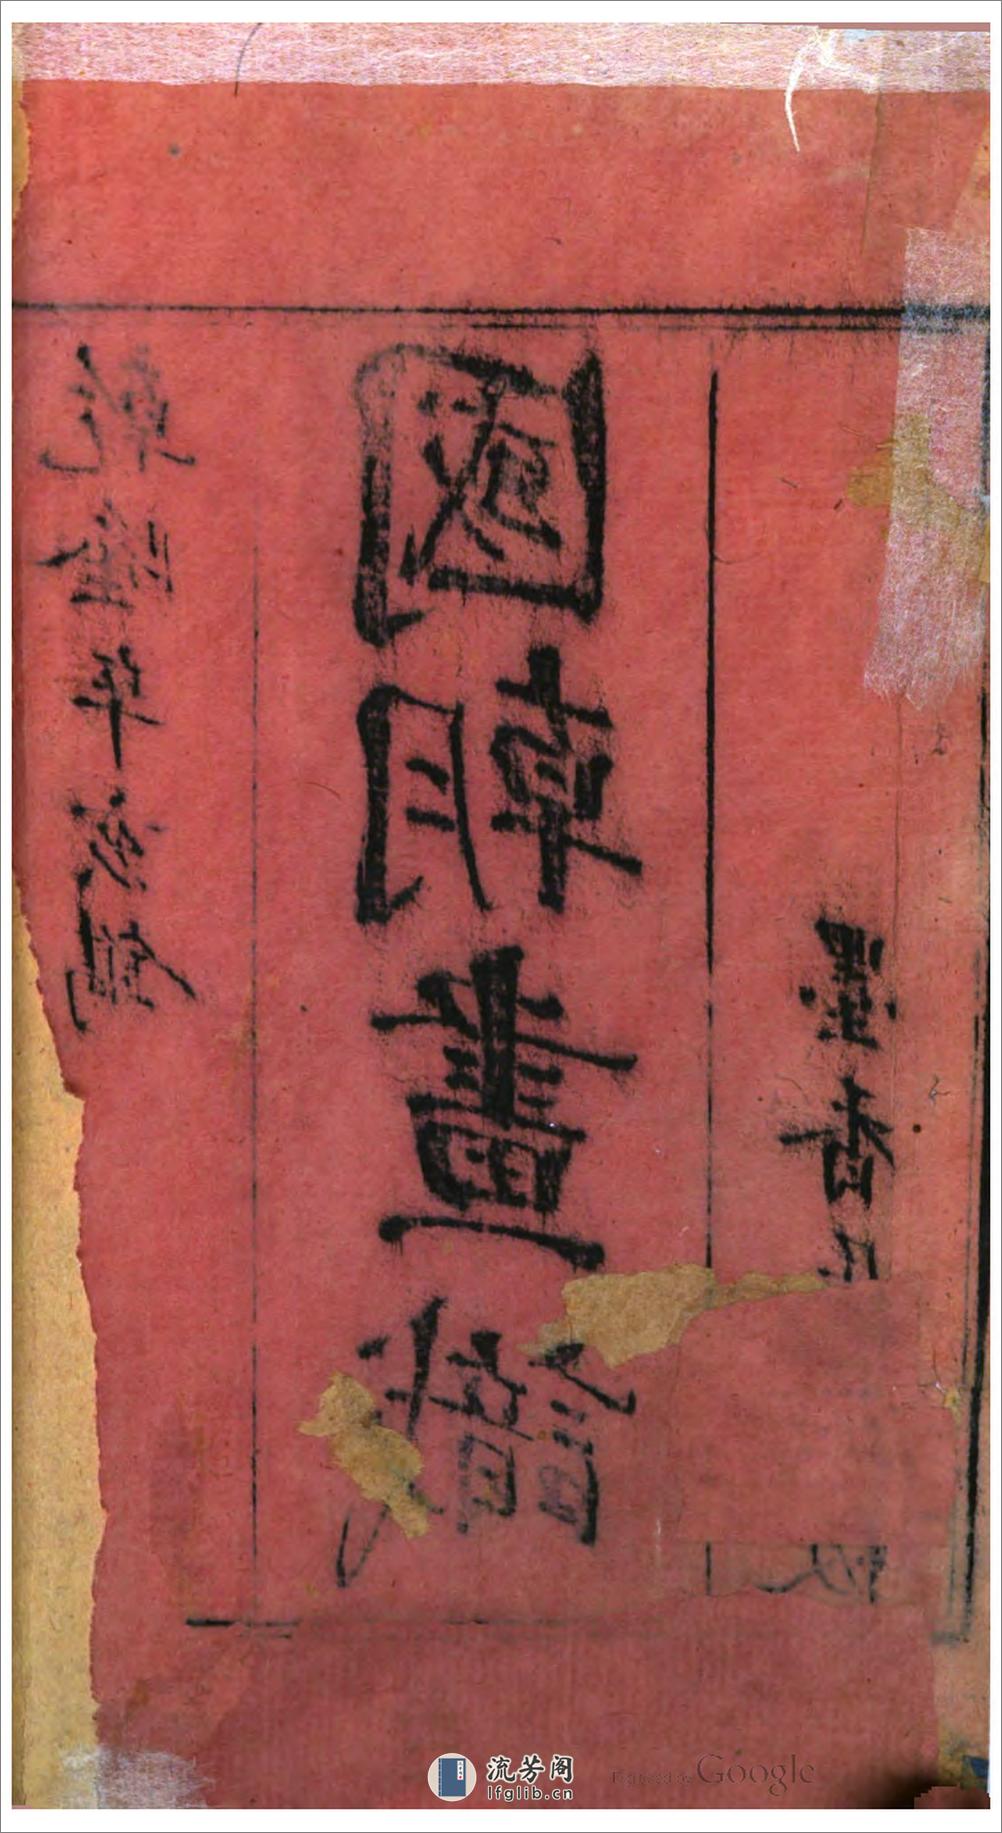 乾隆年新鐫
國朝畫識
墨香
流芳阁
lfglib.cn
Digitized by Google